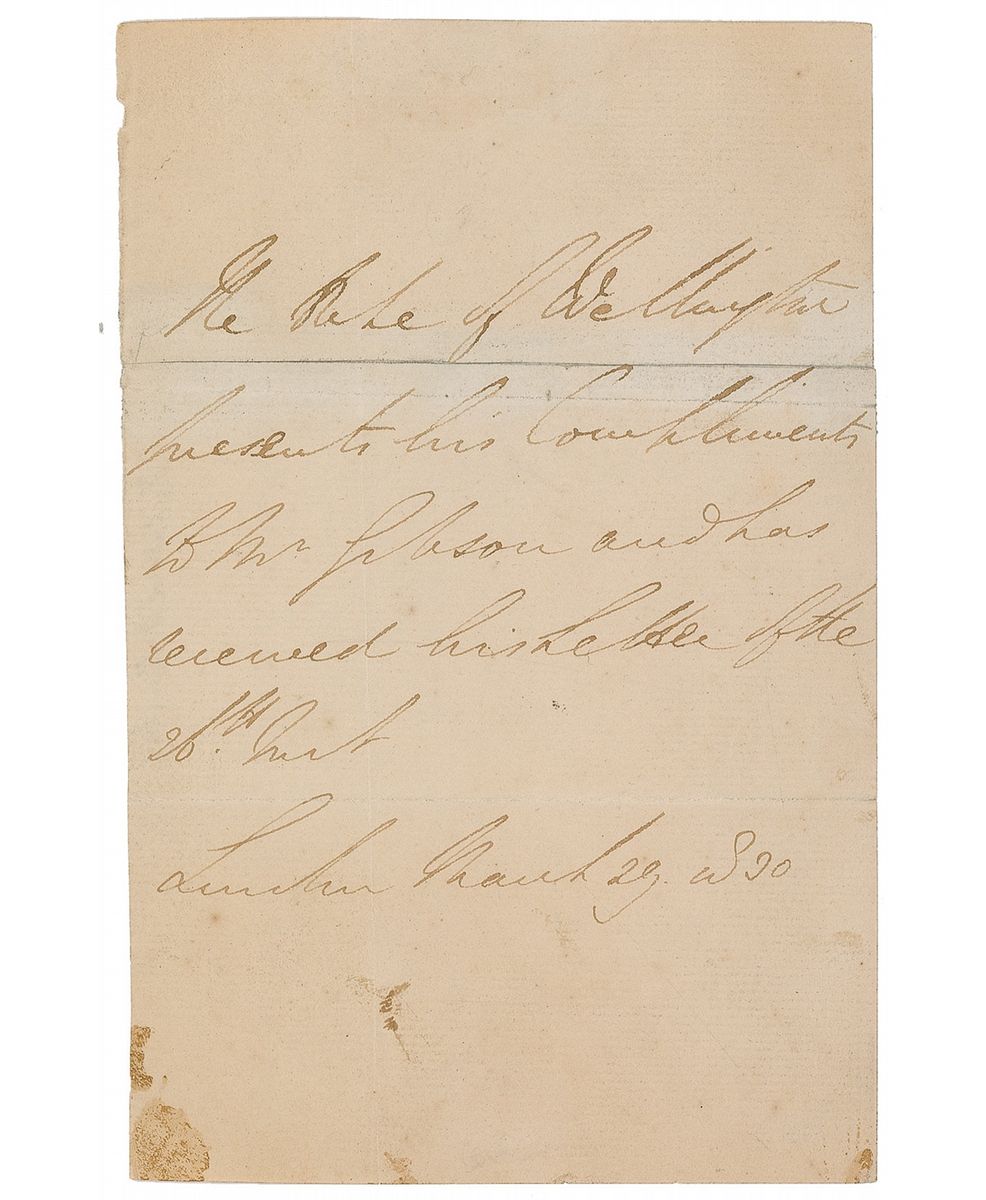 The Duke of Wellington
presents his Compliments
to Mr Gibson and has
received his Letter of the
26th Inst
London March 29. 1830